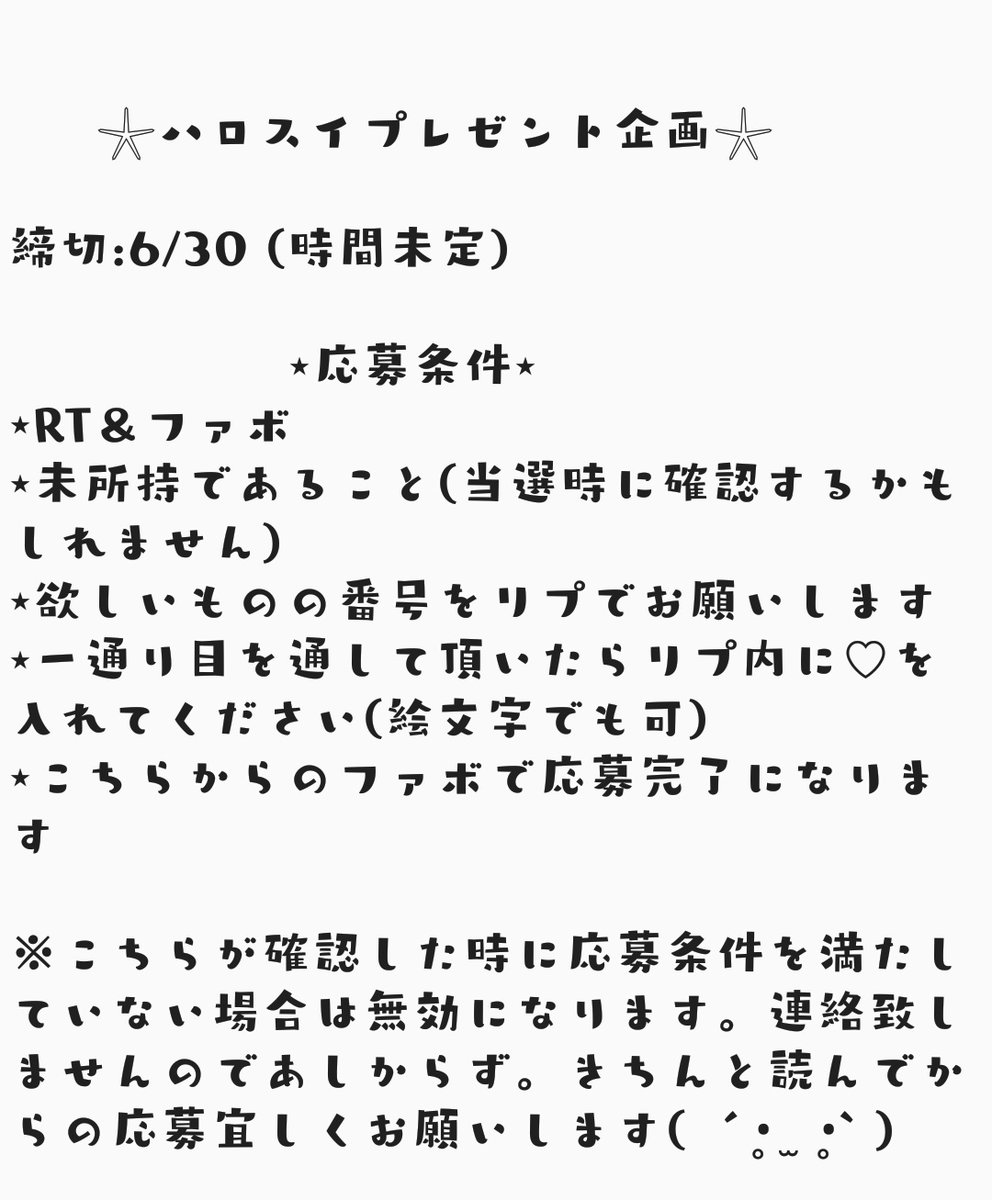 ☆ハロスイプレゼント企画☆
締切:6/30 (時間未定)
⋆応募条件⋆
⋆RT&ファボ
⋆未所持であること(当選時に確認するかも
しれません)
⋆欲しいものの番号をリプでお願いします
⋆一通り目を通して頂いたらリプ内に♡を
入れてください(絵文字でも可)
⋆こちらからのファボで応募完了になりま
す
※こちらが確認した時に応募条件を満たし
ていない場合は無効になります。連絡致し
ませんのであしからず。きちんと読んでか
らの応募宜しくお願いします( ´•̥ ̫ •̥` )